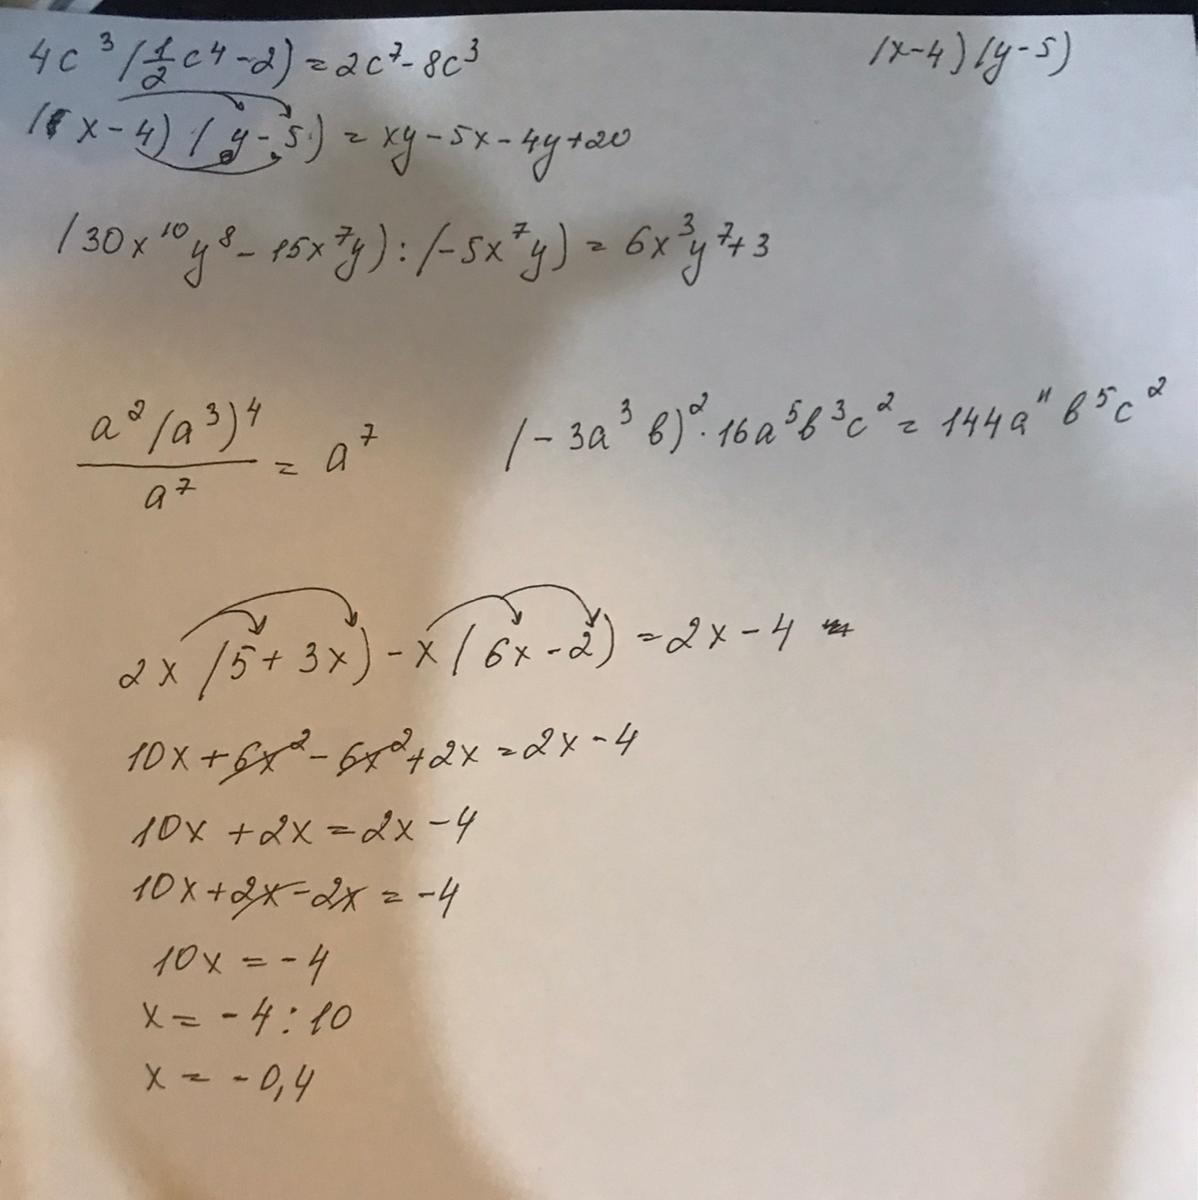 4c³(1/2c⁴-2)=2c⁷-8c³
(x-4)(y-5)
(x-4)(y-5)=xy-5x-4y+20
(30x¹⁰y⁸-15x⁷y):(-5x⁷y)=6x³y⁷+3
a²(a³)⁴/a⁷=a⁷
(-3a³b)²·16a⁵b³c²=144a¹¹b⁵c²
2x(5+3x)-x(6x-2)=2x-4
10x+6x²-6x²+2x=2x-4
10x+2x=2x-4
10x+2x-2x=-4
10x=-4
x=-4:10
x=-0,4